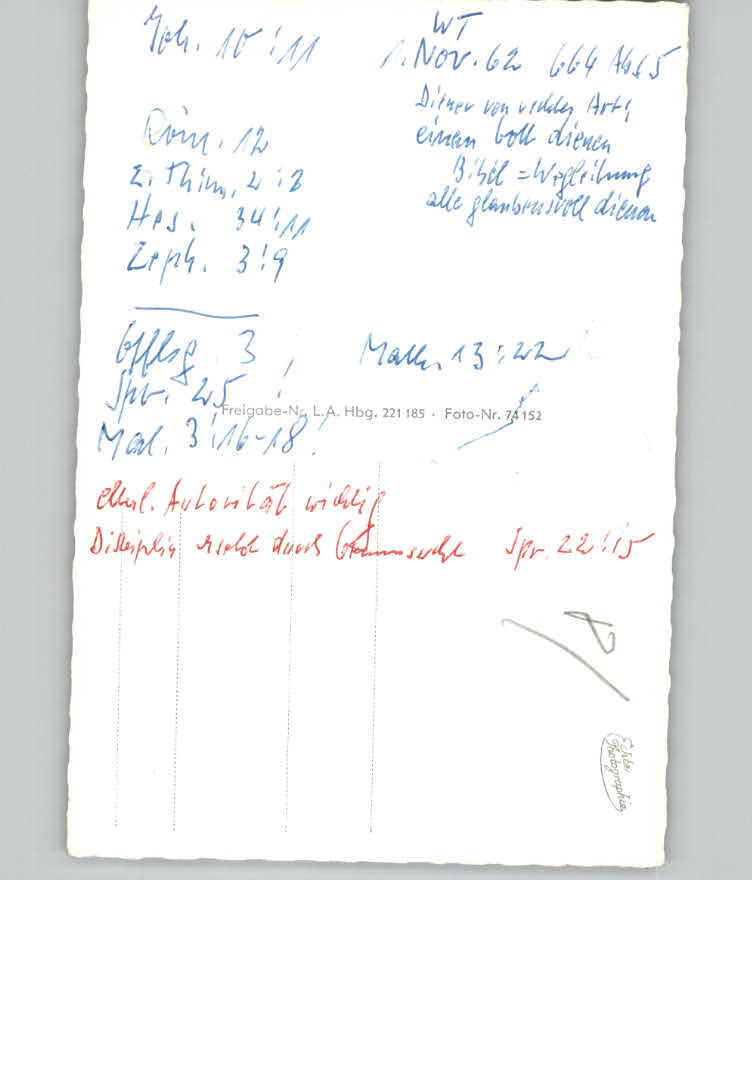 Joh. 10:11
WT
1. Nov. 62 664 Abs 5
Diener von rechter Art,
einem Gott dienen
Bibel = Wegleitung
alle glaubensvoll dienen
Röm. 12
2. Thim. 2:2
Hes. 34:11
Zeph. 3:9
Offbg. 3
Math. 13:22
Spr. 25
Freigabe-Nr. L.A. Hbg. 221 185 · Foto-Nr. 74 152
Mal. 3:16-18!
Autorität wichtig
Disziplin durch Spr. 22:15
Echte Photographie